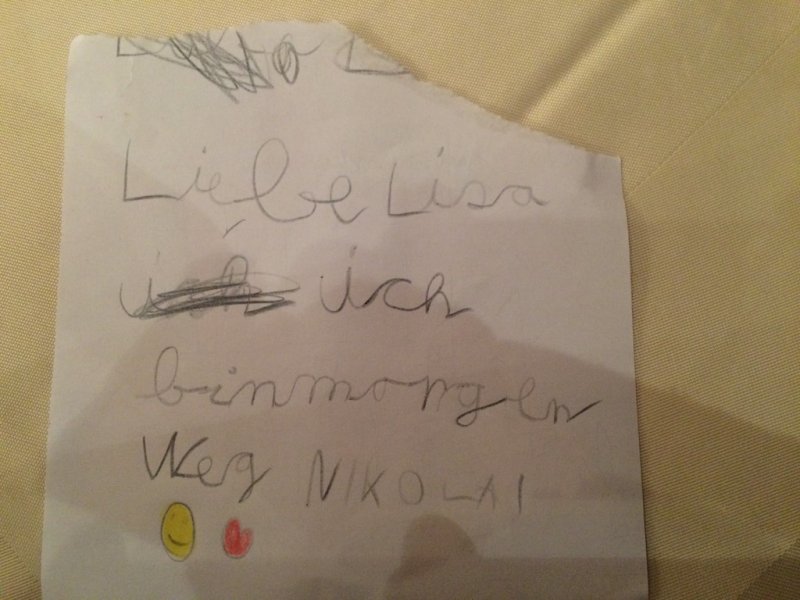 Liebe Lisa
ich ich
binmorgen
Weg NIKOLAI